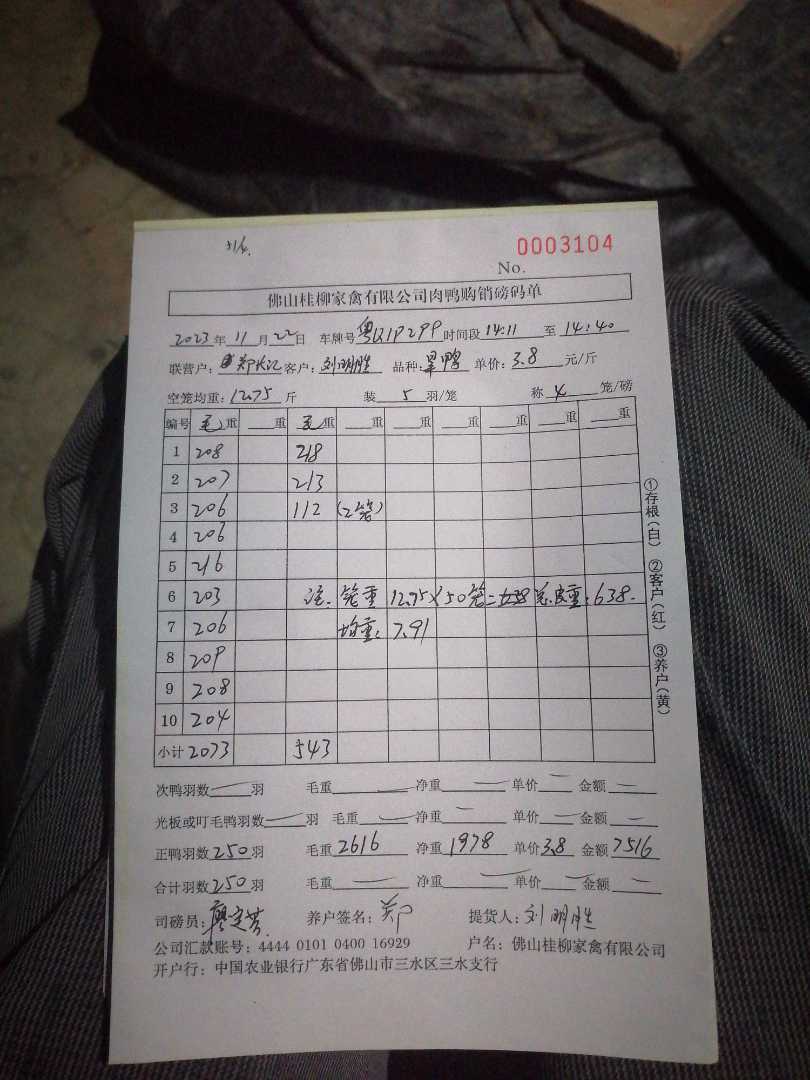 0003104
No.
佛山桂柳家禽有限公司肉鸭购销磅码单
2023年11月22日 车牌号 时间段14:11至14:40
联营户: 客户:刘明胜 品种: 单价:3.8元/斤
空笼均重:12.75斤 装5羽/笼 称4笼/磅
编号 毛重 重 毛重 重 重 重 重 重 重
1 208 218
2 207 213
3 206 112 (2笼)
4 206
5 216
6 203 注. 笼重 12.75×50笼= 总皮重:638.
7 206 均重: 7.91
8 209
9 208
10 204
小计 2073 543
①存根(白) ②客户(红) ③养户(黄)
次鸭羽数 羽 毛重 净重 单价 金额
光板或叮毛鸭羽数 羽 毛重 净重 单价 金额
正鸭羽数250羽 毛重2616 净重1978 单价3.8 金额7516
合计羽数250羽 毛重 净重 单价 金额
司磅员: 养户签名: 提货人:刘明胜
公司汇款账号:4444 0101 0400 16929 户名:佛山桂柳家禽有限公司
开户行:中国农业银行广东省佛山市三水区三水支行